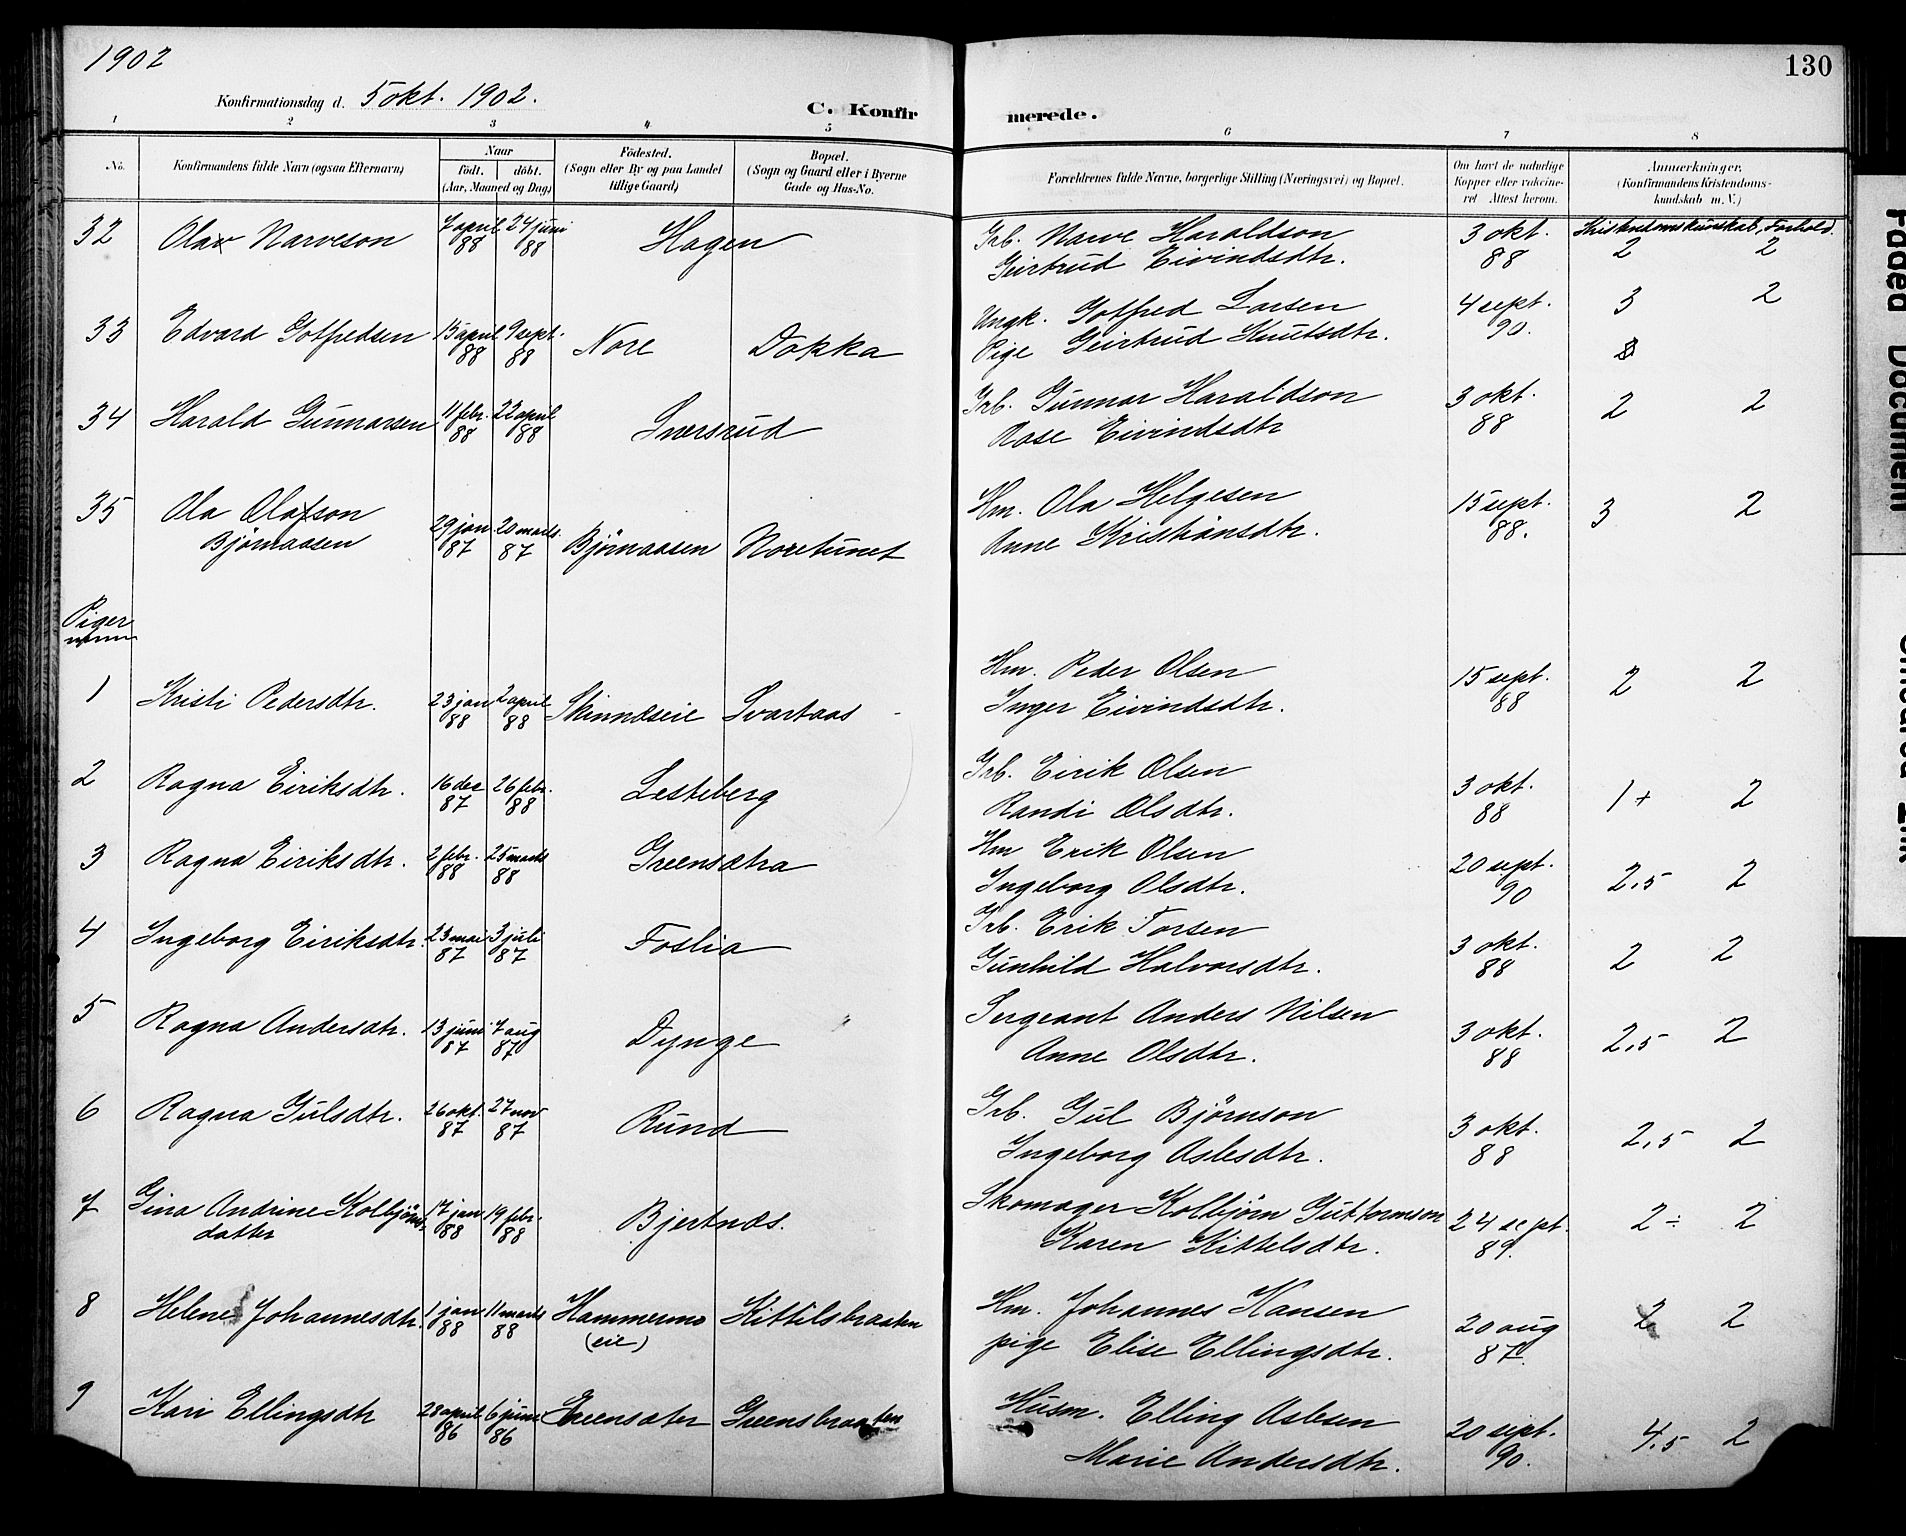 1902
130
Konfirmationsdag d. 5 okt. 1902.
C. Konfirmerede.
1 2 3 4 5 6 7 8
No. Konfirmandens fulde Navn (ogsaa Efternavn) Naar født. døbt. (Aar, Maaned og Dag) Fødested. (Sogn eller By og paa Landet tillige Gaard) Bopæl. (Sogn og Gaard eller i Byerne Gade og Hus-No. Forældrenes fulde Navne, borgerlige Stilling (Næringsvei) og Bopæl. Om havt de naturlige Kopper eller vakcineret Attest herom. Anmærkninger. (Konfirmandens Kristendomskundskab m. V.)
Kristendomskundskab, Forhold.
32 Olav Narveson 7 april 88 24 juni 88 Hagen Grb. Narve Haraldson 3 okt. 88 2 2
Geirtrud Eivindsdtr.
33 Edvard Gotfredsen 15 april 88 9 sept. 88 Nore Dokka Ungk. Gotfred Larsen 4 sept. 90. 3 2
Pige Geirtrud Knutsdtr.
34 Harald Gunnarsen 11 febr. 88 22 april 88 Sversrud Grb. Gunnar Haraldson 3 okt. 88 2 2
Aase Eivindsdtr
35 Ola Olafson 29 jan. 87 20 marts. 87 Bjørnaasen Noretunet Hm. Ola Helgesen 15 sept. 88. 3 2
Bjørnaasen Anne Kristiansdtr.
Piger
1 Kristi Pedersdtr. 23 jan 88 2 april 88 Skinnæseie Svartaas Hm. Peder Olsen 15 sept. 88 2 2
Inger Eivindsdtr.
2 Ragna Eiriksdtr. 16 dec 87 26 febr. 88 Lesteberg Grb. Eirik Olsen 3 okt. 88 1+ 2
Randi Olsdtr.
3 Ragna Eiriksdtr. 2 febr. 88 25 marts 88 Greensætra Hm Erik Olsen 20 sept. 90 2,5 2
Ingeborg Olsdtr.
4 Ingeborg Eiriksdtr. 23 mai 87 3 juli 87 Foslia Grb. Erik Torsen 3 okt. 88 2 2
Gunhild Halvorsdtr.
5 Ragna Andersdtr. 13 juni 87 7 aug 87 Dynge Sergeant Anders Nilsen 3 okt. 88 2,5 2
Anne Olsdtr.
6 Ragna Gulsdtr. 26 okt. 87 27 nov 87 Rund Grb. Gul Bjørnson 3 okt. 88 2,5 2
Ingeborg Aslesdtr.
7 Gina Andrine Kolbjørns- 17 jan 88 19 febr. 88 Bjertnæs. Skomager Kolbjørn Guttormson 24 sept. 89. 2÷ 2
datter Karen Kittelsdtr.
8 Helene Johannesdtr. 1 jan 88 11 marts 88 Hammermo (eie) Kittilsbraaten Hm. Johannes Hansen 20 aug 87. 2 2
pige Elise Ellingsdtr.
9 Kari Ellingsdtr 28 april 86 6 juni 86 Greensæter Greensbraaten Husm. Elling Aslesen 20 sept. 90. 4,5 2
Marie Andersdtr.
Faded Document